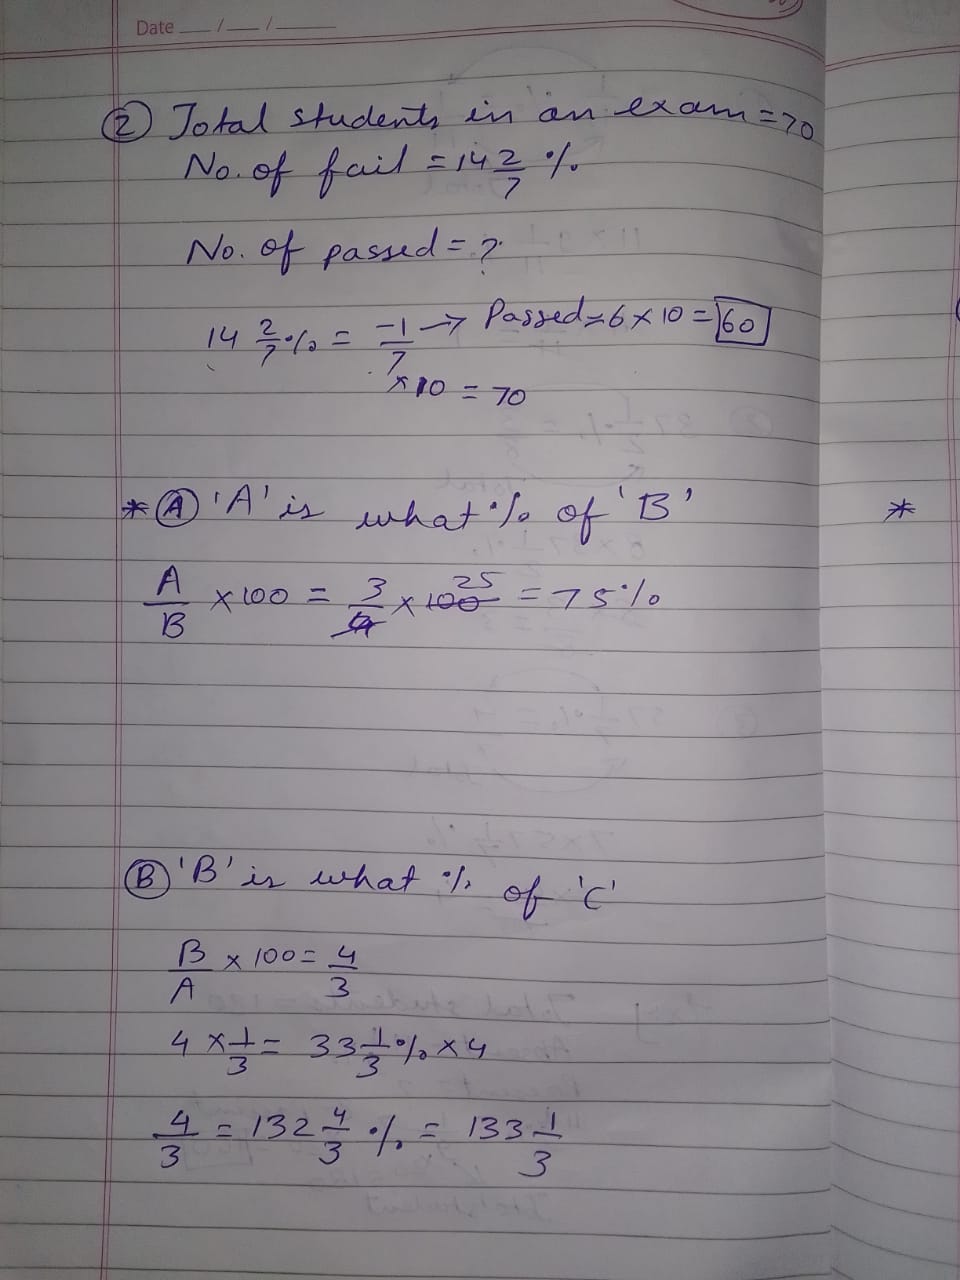 Date __/__/____
② Total students in an exam = 70
No. of fail = 14 2/7 %
No. of passed = ?
14 2/7 % = -1/7 → Passed = 6 × 10 = 60
× 10 = 70
* Ⓐ 'A' is what % of 'B'
A/B × 100 = 3/4 × 100 25 = 75%
*
Ⓑ 'B' is what % of 'C'
B/A × 100 = 4/3
4 × 1/3 = 33 1/3 % × 4
4/3 = 132 4/3 % = 133 1/3